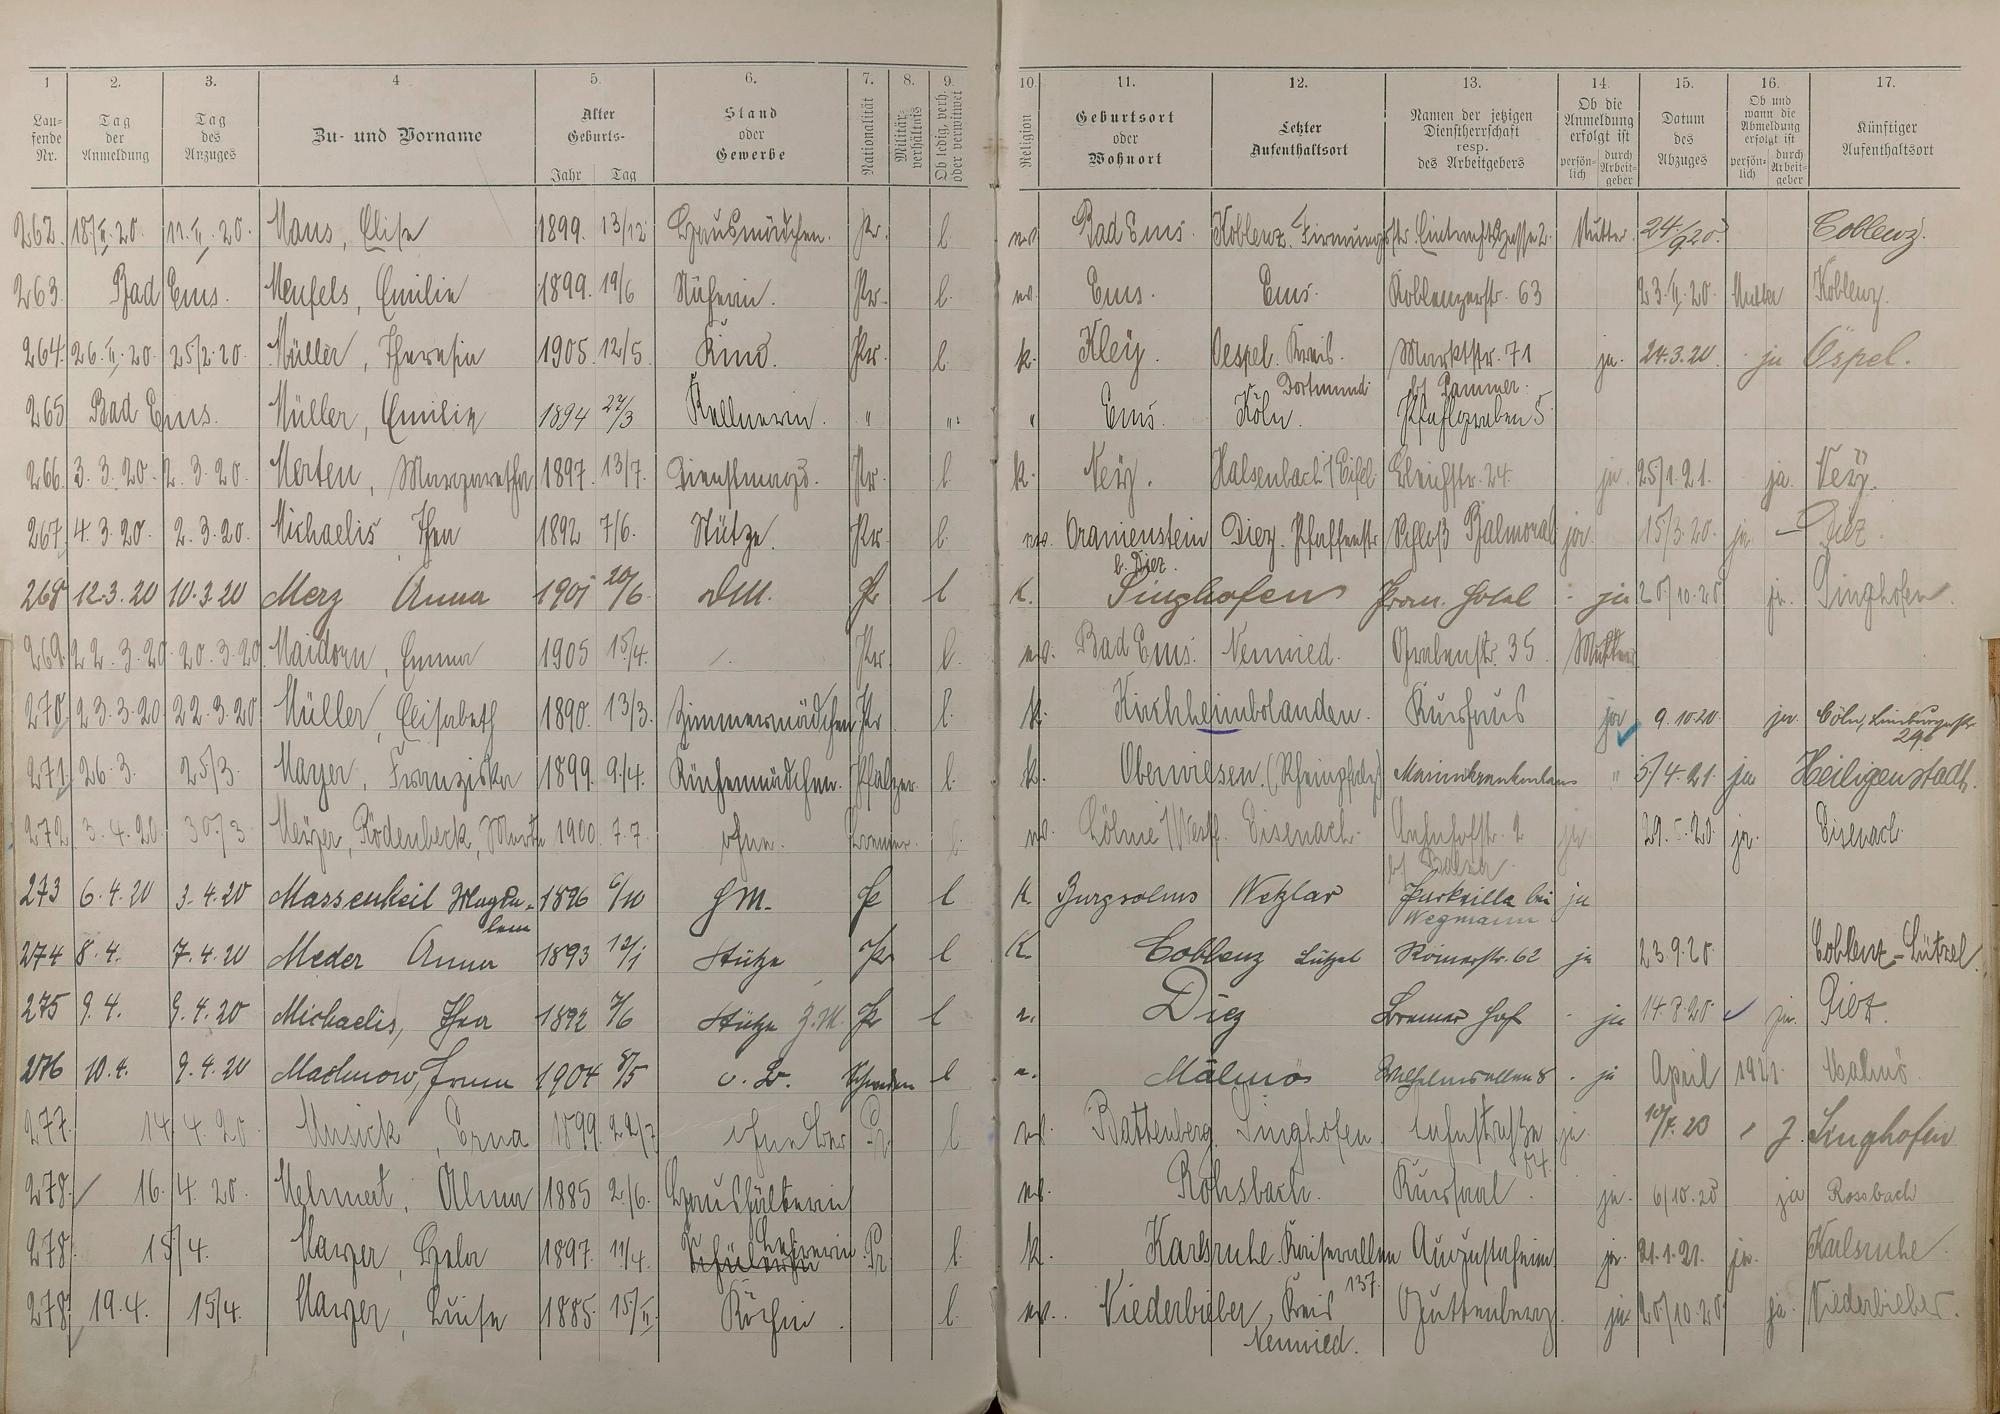 1 2. 3. 4 5. 6. 7. 8. 9. 10. 11. 12. 13. 14. 15. 16. 17.
Laufende Nr. Tag der Anmeldung Tag des Anzuges Zu- und Vorname Alter Geburts- Jahr Tag Stand oder Gewerbe Nationalität Militärverhältnis Ob ledig, verh. oder verwitwet Religion Geburtsort oder Wohnort Letzter Aufenthaltsort Namen der jetzigen Dienstherrschaft resp. des Arbeitgebers Ob die Anmeldung erfolgt ist persönlich durch Arbeitgeber Datum des Abzuges Ob und wann die Abmeldung erfolgt ist persönlich durch Arbeitgeber Künftiger Aufenthaltsort
262. 18/II.20. 11.II.20. Maus, Elise 1899. 13/12 Hausmädchen. Pr. l. ev. Bad Ems. Koblenz. Firmungstr. Eintrachtgasse 2. Mutter. 24/9 20. Coblenz.
263. Bad Ems. Meufels, Emilie 1899. 19/6 Näherin. Pr. l. ev. Ems. Ems. Koblenzerstr. 63 23.II.20. Mutter Koblenz.
264. 26.II.20. 25/2.20. Müller, Theresia 1905 12/5. Kind. Pr. l. k. Kley. Oespel. Kreis Dortmund. Marktstr. 71 ja. 24.3.20 ja Öspel.
265 Bad Ems. Müller, Emilie 1894 Kellnerin. " " " Ems. Köln. Pfahlgraben 5
266. 3.3.20. 2.3.20. Merten, Margaretha 1897. 13/7. Dienstmagd. Pr. l. k. Ney. Halsenbach / Eifel 24. ja. 25/1.21. ja. Ney.
267. 4.3.20. 2.3.20. Michaelis Thea 1892 7/6. Stütze. Pr. l. ev. Oranienstein b. Diez. Diez. Pfaffenstr Schloß Balmoral ja. 15/3.20. ja. – Diez.
268 12.3.20 10.3.20 Merz Anna 1901 20/6 DM. Pr l K. Singhofen Hotel ja 20/10.20 ja. Singhofen.
269. 22.3.20 20.3.20 Maidorn, Emma 1905 15/4. Pr. l. ev. Bad Ems. Neuwied. Grabenstr. 35 Mutter
270. 23.3.20 22.3.20 Müller, Elisabeth 1890. 13/3. Zimmermädchen Pr l. k. Kirchheimbolanden. Kurhaus ja 9.10.20 ja. Cöln, Limburgerstr 29.
271. 26.3. 25/3. Mayer, Franziska 1899. 9./4. Küchenmädchen. Pfälzer. l. k. Oberwiesen. (Rheinpfalz) Marienkrankenhaus " 5/4.21. ja Heiligenstadt.
272 3.4.20 30/3 Meyer, Rödenbeck, Marta 1900 7.7. ohne. l. ev. Löhne / Westf. Eisenach. Bahnhofstr. 2 ja 29.5.20. ja. Eisenach
273 6.4.20 3.4.20 Massenkeil Magdalena 1896 6/10 HM. Pr l K. Burgsolms Wetzlar Parkvilla bei Wegmann ja
274 8.4. 7.4.20 Meder Anna 1893 12/1 Stütze Pr l K. Coblenz Lützel Römerstr. 62 ja 23.9.20 Coblenz-Lützel.
275 9.4. 9.4.20 Michaelis, Thea 1892 7/6 Stütze Z.M. Pr l e. Diez Bremer Hof ja 14.8.20 ja. Diez.
276 10.4. 9.4.20 Machnow, 1904 8/5 o. B. Schweden l e. Malmö Wilhelmsallee 8 ja April 1921. Malmö
277. 14.4.20. Erna 1899. 22/7 Pr l ev. Battenberg. Singhofen Lahnstraße 64. ja. 10/8.20 J. Singhofen
278. 16./4.20. Mehnert, Alma 1885 2/6. Haushälterin ev. Rohsbach. Kursaal. ja. 6/10.20 ja Rossbach
278. 15/4. Mayer, Hela 1897. 11/4. Schülerin Lehrerin Pr l. k. Karlsruhe. Kaiserallee 137. Augustaheim ja. 21.1.21. ja. Karlsruhe
278. 19.4. 15/4. Mayer, Luise 1885. 15/II. Köchin. l. ev. Niederbieber, Kreis Neuwied. Guttenberg. ja. 20/10.20 ja. Niederbieber.